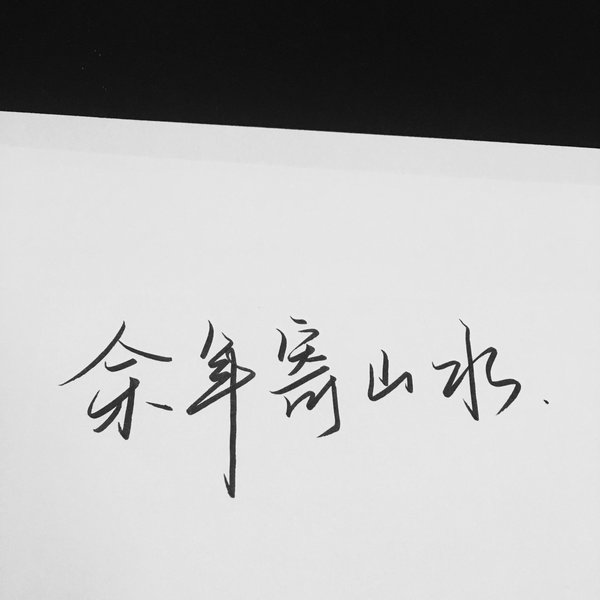 余年寄山水.